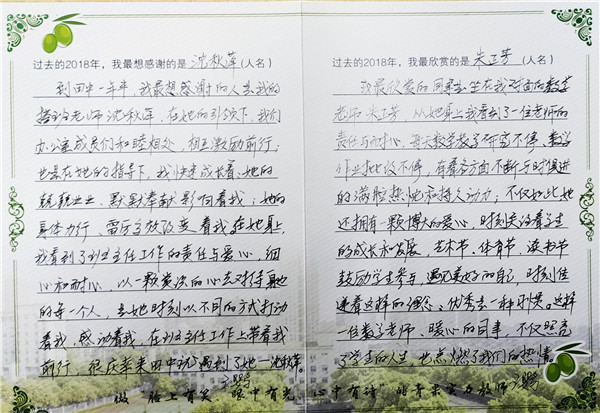 过去的2018年，我最想感谢的是 沈秋萍 （人名）
到田中一年半，我最想感谢的人是我的
搭班老师沈秋萍，在她的引领下，我们
办公室成员们和睦相处，相互激励前行；
也是在她的指导下，我快速成长着；她的
兢兢业业、默默奉献影响着我；她的
身体力行、雷厉 改变着我，在她身上，
我看到了班主任工作的责任与爱心，细
心和耐心，以一颗 的心去对待身边
的每一个人，是她时刻以不同的方式打动
着我，感动着我，在班主任工作上带着我
前行，很庆幸来田中就遇到了她—沈秋萍。
过去的2018年，我最欣赏的是 朱卫芳 （人名）
我最欣赏的同事是坐在我对面的数学
老师朱卫芳，从她身上我看到了一位老师的
责任与耐心，每天数学教学研究不停、数学
作业批改不停，有着各方面不断与时俱进
的满腔热忱和持久动力；不仅如此她
还拥有一颗博大的爱心，时刻关注着学生
的成长和发展，艺术节、体育节、读书节
鼓励学生参与，遇见美好的自己，时刻传
递着这样的理念：优秀是一种习惯。这样
一位数学老师、暖心的同事，不仅照亮
了学生的人生，也点燃了我们的热情。
做“脸上有笑 眼中有光 心中有诗”的青未 教师